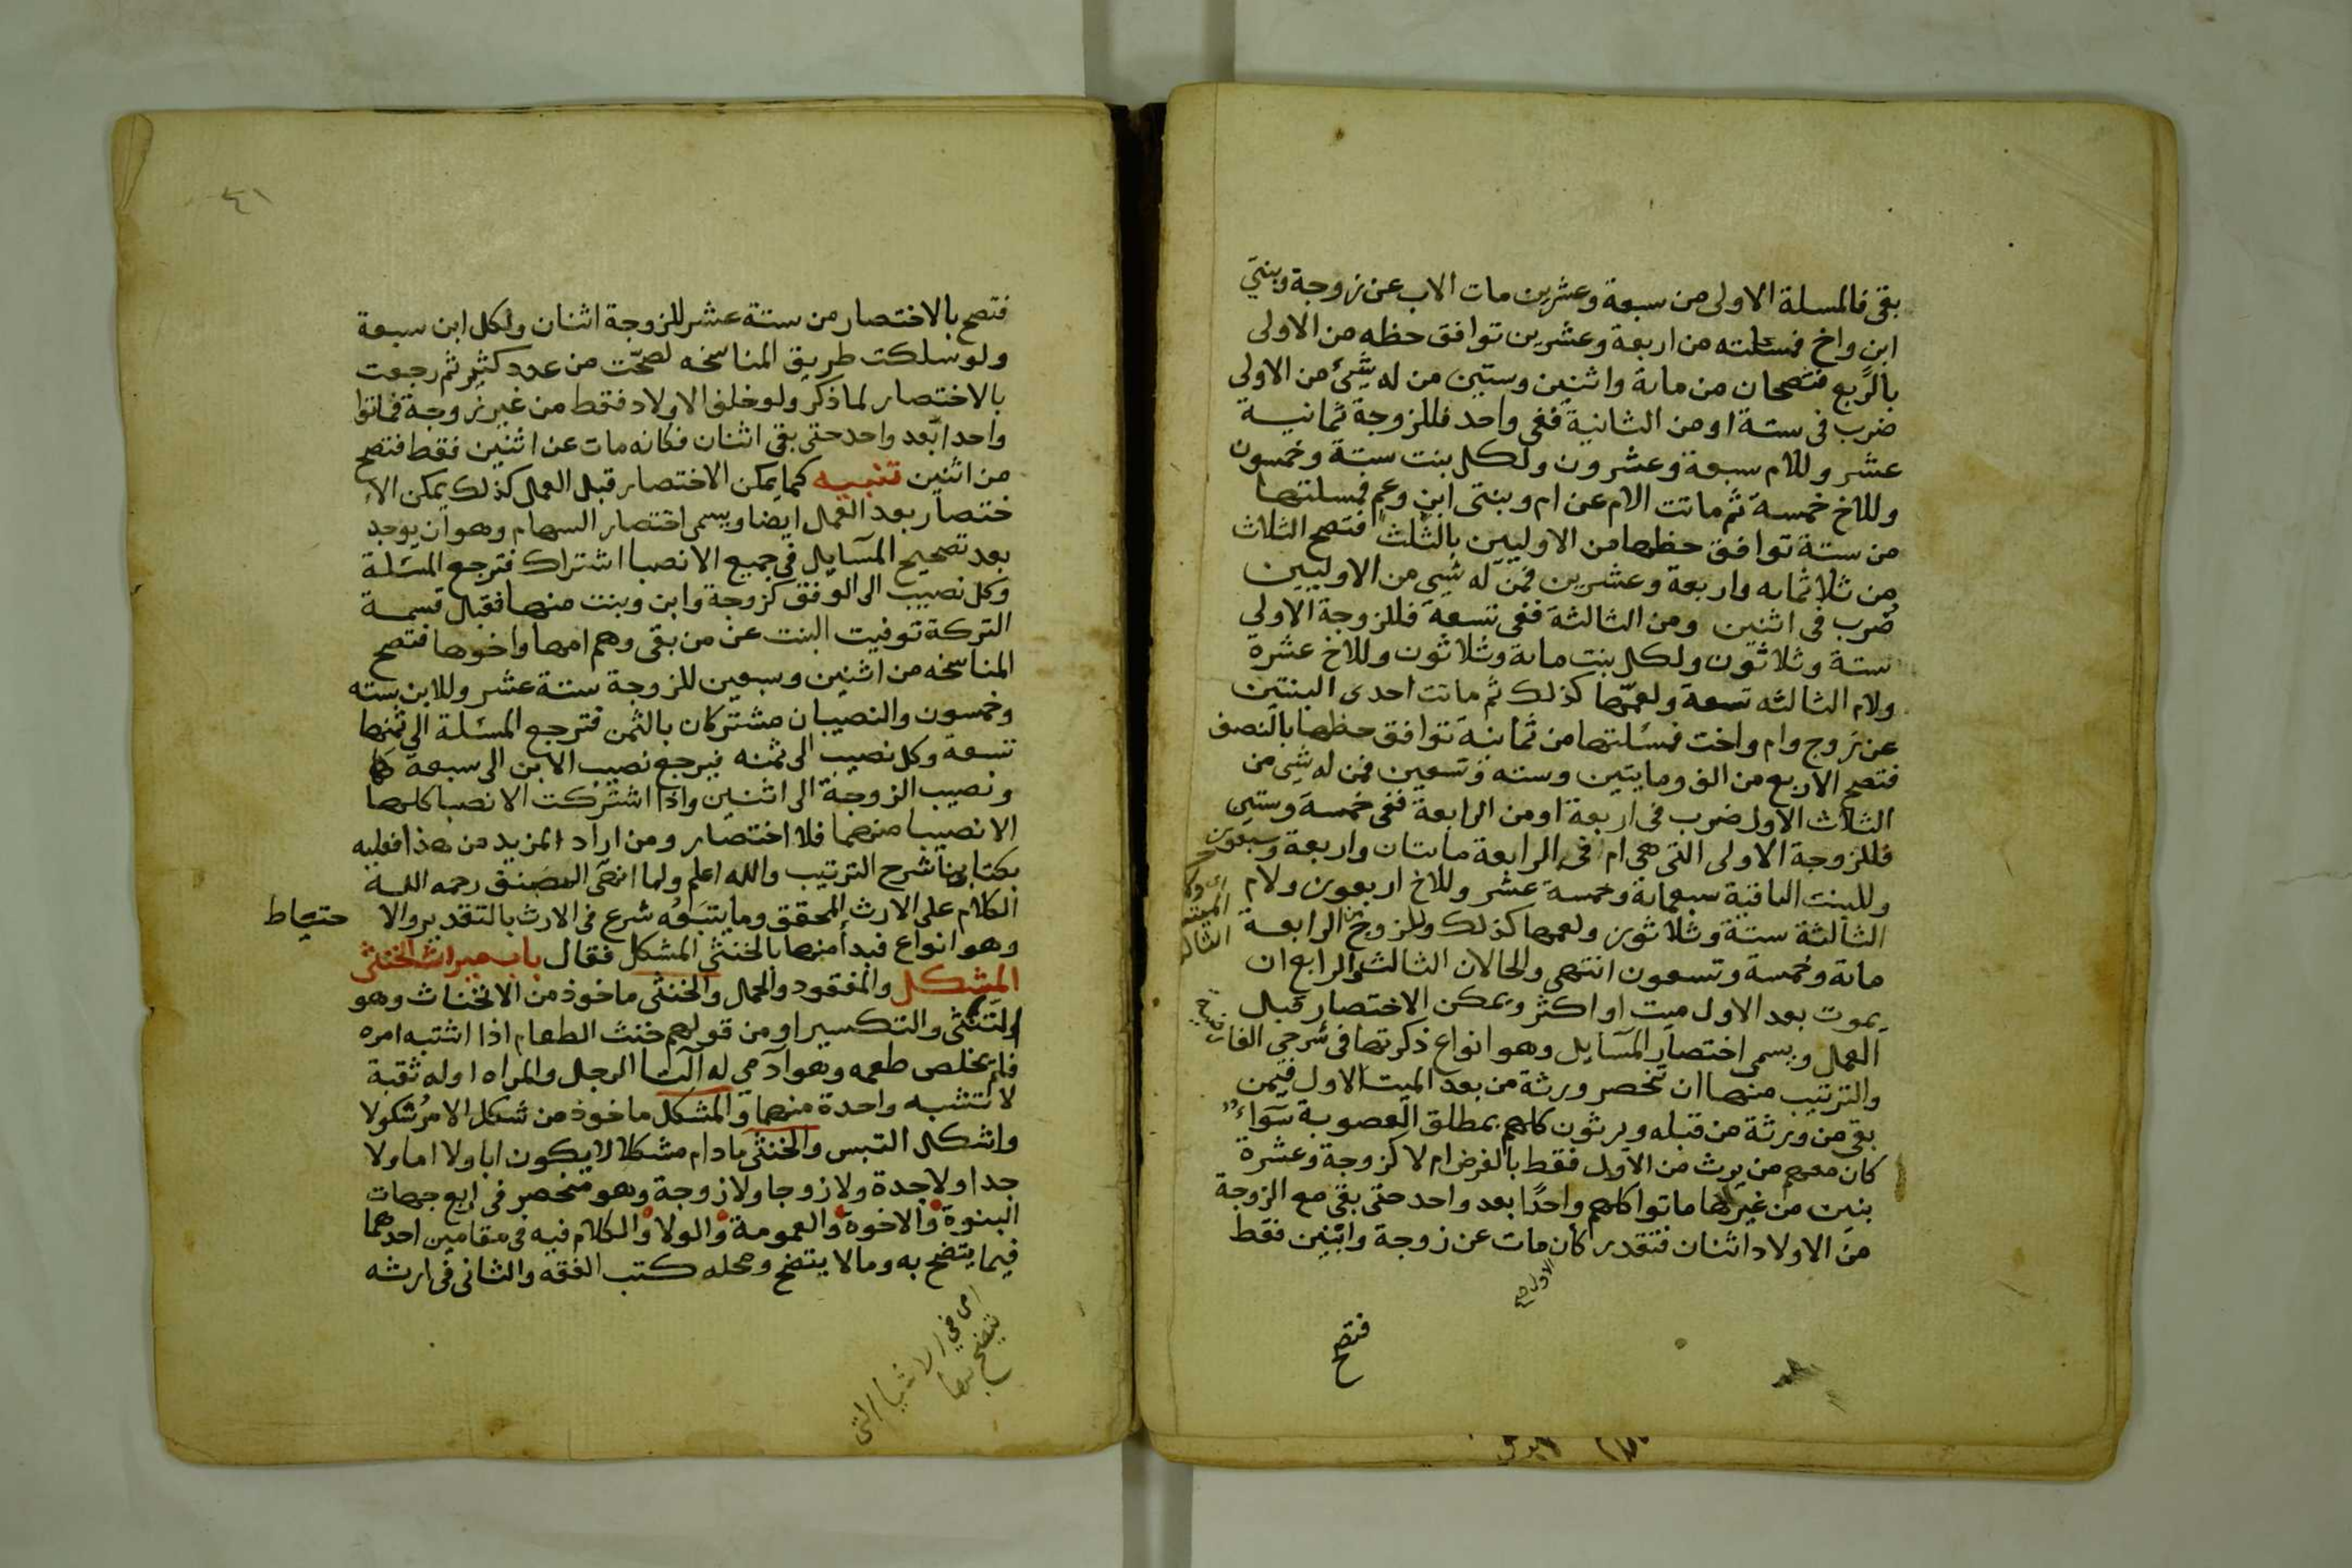 بقى فالمسلة الاولى من سبعة وعشرين مات الاب عن زوجة وبنتي
ابن واخ فمسئلته من اربعة وعشرين توافق حظه من الاولى
بالرّبع فتصحان من ماىة واثنين وستين من له شئ من الاولى
ضرب فى ستة او من الثانية ففى واحد فللزوجة ثمانية
عشر وللام سبعة وعشرون ولكل بنت ستة وخمسون
وللاخ خمسة ثم ماتت الام عن ام وبنتى ابن وعم فمسلتها
من ستة توافق حظها من الاوليين بالثلث فتصح الثلاث
من ثلاثماىه واربعة وعشرين فمن له شئ من الاوليين
ضُرب فى اثنين ومن الثالثة ففى تسعة فللزوجة الاولى
ستة وثلاثون ولكل بنت ماىة وثلاثون وللاخ عشرة
ولام الثالثه تسعة ولعمّها كذلك ثم ماتت احدى البنتين
عن زوج وام واخت فمسئلتها من ثمانية توافق حظها بالنصف
فتصح الاربع من الف ومايتين وسته وتسعين فمن له شئ من
الثلاث الاول ضرب فى اربعة او من الرابعة ففى خمسة وستين
فللزوجة الاولى التى هى ام فى الرابعة مايتان واربعة وسبعون
وللبنت الباقية سبعماىة وخمسة عشر وللاخ اربعون ولام
الثالثة ستة وثلاثون ولعمها كذلك وللزوج فى الرابعة
ماىة وخمسة وتسعون انتهى والحالان الثالث والرابع ان
يموت بعد الاول ميت او اكثر ويمكن الاختصار قبل
العمل ويسمى اختصار المسآيل وهو انواع ذكرتها فى شرحي الفارضية
والترتيب منها ان تنحصر ورثة من بعد الميت الاول فيمن
بقى من ورثة من قبله ويرثون كلهم بمطلق العصوبة سَوَاءٌ
كان معهم من يرث من الاول فقط بالفرض ام لا كزوجة وعشرة
بنين من غيرها ماتوا كلهم واحدًا بعد واحد حتى بقى مع الزوجة
من الاولاد اثنان فتقدر كان مات عن زوجة وابنين فقط
الاول صح
فتصح
٤١
فتصح بالاختصار من ستة عشر للزوجة اثنان ولكل ابن سبعة
ولو سلكت طريق المناسخه لصحّت من عدد كثير ثم رجعت
بالاختصار لما ذكر ولو خلف الاولاد فقط من غير زوجة فماتوا
واحدا بعد واحد حتى بقى اثنان فكانه مات عن اثنين فقط فتصح
من اثنين تنبيه كما يمكن الاختصار قبل العمل كذلك يمكن الا
ختصار بعد العمل ايضا ويسمى اختصار السهام وهو ان يوجد
بعد تصحيح المسآيل فى جميع الانصبا اشتراك فترجع المسئلة
وكل نصيب الى الوفق كزوجة وابن وبنت منها فقبل قسمة
التركة توفيت البنت عن من بقى وهم امها واخوها فتصح
المناسخه من اثنين وسبعين للزوجة ستة عشر وللابن سته
وخمسون والنصيبان مشتركان بالثمن فترجع المسئلة الى ثمنها
تسعة وكل نصيب الى ثمنه فيرجع نصيب الابن الى سبعة
ونصيب الزوجة الى اثنين واذا اشتركت الانصبا كلها
الا نصيبا منهما فلا اختصار ومن اراد المزيد من هذا فعليه
بكتابنا شرح الترتيب والله اعلم ولما انهى المصنف رحمه الله
الكلام على الارث المحقق وما يتبَعُه شرع فى الارث بالتقدير والا حتياط
وهو انواع فبدأ منها بالخنثى المشكل فقال باب ميراث الخنثى
المشكل والمفقود والحمل والخنثى ماخوذ من الانخناث وهو
التثنى والتكسير او من قولهم خنث الطعام اذا اشتبه امره
فلم يخلص طعمه وهو آدمي له آلتا الرجل والمراه او له ثقبة
لا تشبه واحدة منهما والمشكل ماخوذ من شكل الامرُ شكولا
واشكل التبس والخنثى ما دام مشكلا لا يكون ابا ولا اما ولا
جدا ولا جدة ولا زوجا ولا زوجة وهو منحصر فى اربع جهات
البنوة والاخوة والعمومة والولا والكلام فيه فى مقامين احدهما
فيما يتضح به وما لا يتضح ومحله كتب الفقه والثانى فى ارثه
التى
يتضح بها